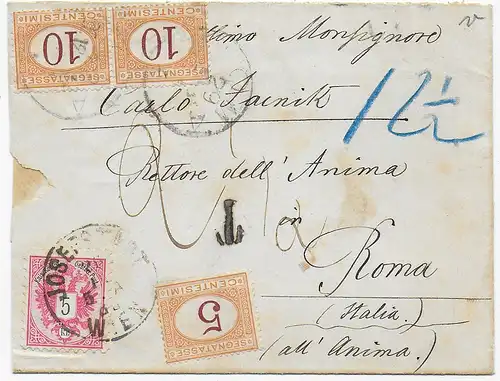 10 10
CENTESIMI CENTESIMI
SEGNATASSE SEGNATASSE
Monsignore
Carlo Jaenik
12½
Rettore dell' Anima
in
T
Roma
(Italia.)
(all' Anima.)
JOSEFSTADT
WIEN
5
5
CENTESIMI
SEGNATASSE